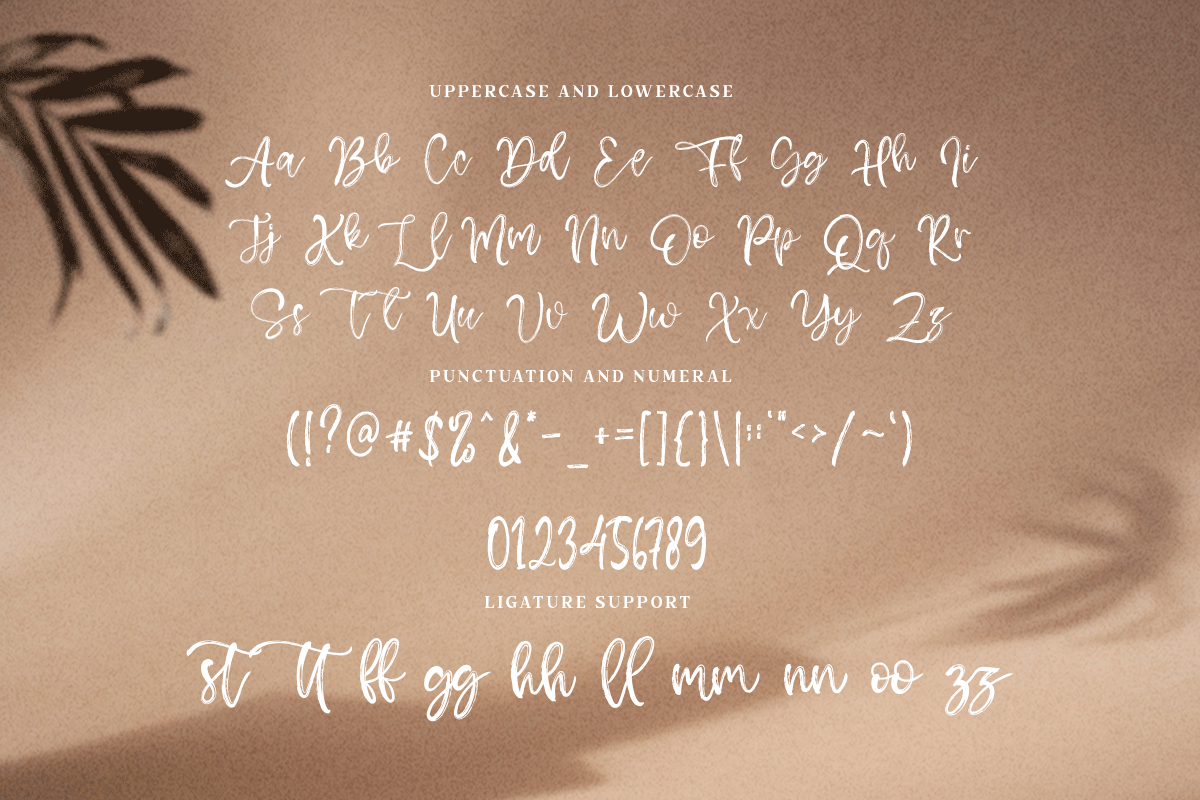 UPPERCASE AND LOWERCASE
Aa Bb Cc Dd Ee Ff Gg Hh Ii
Jj Kk Ll Mm Nn Oo Pp Qq Rr
Ss Tt Uu Vv Ww Xx Yy Zz
PUNCTUATION AND NUMERAL
(!?@#$%^&*-_+=[]{}\|:;'"<>/~`)
0123456789
LIGATURE SUPPORT
st tt ff gg hh ll mm nn oo zz